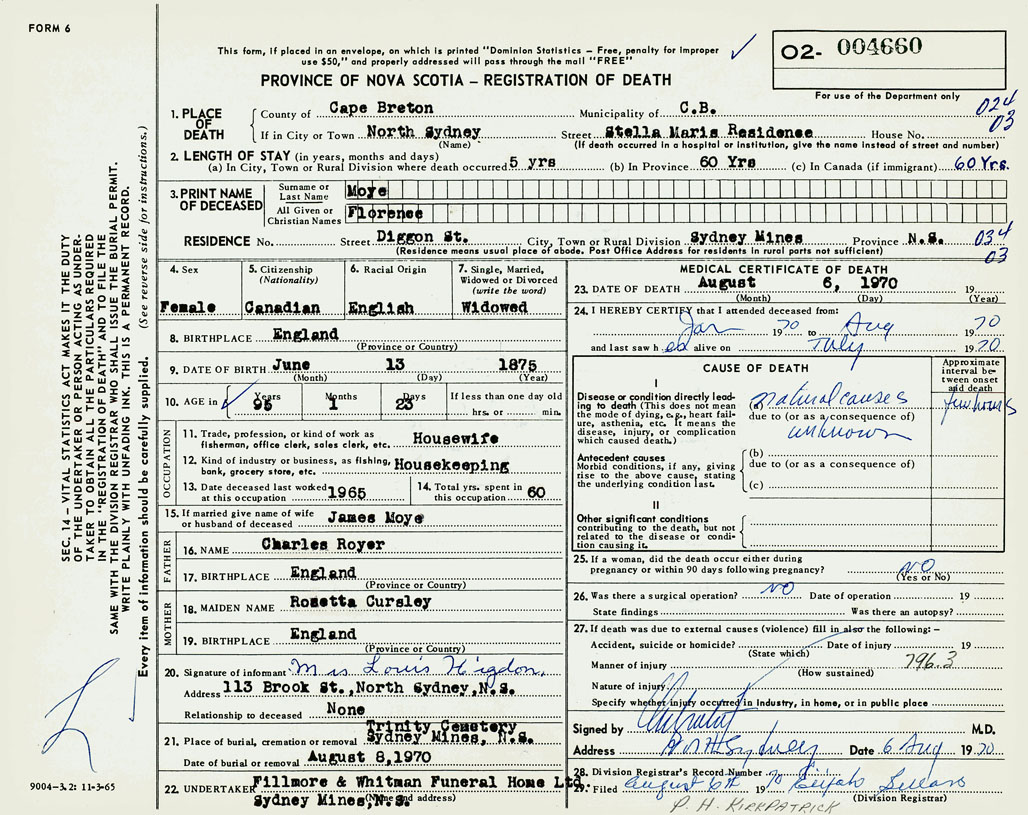 FORM 6
This form, if placed in an envelope, on which is printed "Dominion Statistics – Free, penalty for improper
use $50," and properly addressed will pass through the mail "FREE"
PROVINCE OF NOVA SCOTIA – REGISTRATION OF DEATH
02- 004660
For use of the Department only
024
03
1. PLACE OF DEATH
County of Cape Breton Municipality of C.B.
If in City or Town North Sydney Street Stella Maris Residence House No.
(Name) (If death occurred in a hospital or institution, give the name instead of street and number)
2. LENGTH OF STAY (in years, months and days)
(a) In City, Town or Rural Division where death occurred 5 yrs (b) In Province 60 Yrs (c) In Canada (if immigrant) 60 Yrs.
3. PRINT NAME OF DECEASED
Surname or Last Name Moye
All Given or Christian Names Florence
RESIDENCE No. Street Diggon St. City, Town or Rural Division Sydney Mines Province N.S.
(Residence means usual place of abode. Post Office Address for residents in rural parts not sufficient)
034
03
4. Sex
Female
5. Citizenship
(Nationality)
Canadian
6. Racial Origin
English
7. Single, Married,
Widowed or Divorced
(write the word)
Widowed
8. BIRTHPLACE England
(Province or Country)
9. DATE OF BIRTH June 13 1875
(Month) (Day) (Year)
10. AGE in Years Months Days If less than one day old
95 1 23 hrs. or min.
OCCUPATION
11. Trade, profession, or kind of work as
fisherman, office clerk, sales clerk, etc. Housewife
12. Kind of industry or business, as fishing,
bank, grocery store, etc. Housekeeping
13. Date deceased last worked
at this occupation 1965
14. Total yrs. spent in
this occupation 60
15. If married give name of wife
or husband of deceased James Moye
FATHER
16. NAME Charles Royer
17. BIRTHPLACE England
(Province or Country)
MOTHER
18. MAIDEN NAME Rosetta Cursley
19. BIRTHPLACE England
(Province or Country)
20. Signature of informant Mrs Louis Higdon,
Address 113 Brook St., North Sydney, N.S.
Relationship to deceased None
21. Place of burial, cremation or removal Trinity Cemetery
Sydney Mines, N.S.
Date of burial or removal August 8, 1970
22. UNDERTAKER Fillmore & Whitman Funeral Home Ltd.
Sydney Mines, N.S.
(Name and address)
MEDICAL CERTIFICATE OF DEATH
23. DATE OF DEATH August 6, 1970 19
(Month) (Day) (Year)
24. I HEREBY CERTIFY that I attended deceased from:
Jan 1970 to Aug 1970
and last saw h er alive on July 1970
CAUSE OF DEATH
Approximate
interval be-
tween onset
and death
I
Disease or condition directly lead-
ing to death (This does not mean
the mode of dying, e.g., heart fail-
ure, asthenia, etc. It means the
disease, injury, or complication
which caused death.)
(a) natural causes few hours
due to (or as a consequence of)
unknown
Antecedent causes
Morbid conditions, if any, giving
rise to the above cause, stating
the underlying condition last.
(b)
due to (or as a consequence of)
(c)
II
Other significant conditions
contributing to the death, but not
related to the disease or condi-
tion causing it.
25. If a woman, did the death occur either during
pregnancy or within 90 days following pregnancy? NO
(Yes or No)
26. Was there a surgical operation? NO Date of operation 19
State findings Was there an autopsy?
27. If death was due to external causes (violence) fill in also the following: –
Accident, suicide or homicide? Date of injury 19
(State which)
Manner of injury 796.3
(How sustained)
Nature of injury
Specify whether injury occurred in Industry, in home, or in public place
Signed by M.D.
Address North Sydney Date 6 Aug 1970
28. Division Registrar's Record Number
29. Filed August 6th 1970 Elijah
(Division Registrar)
P. H. KIRKPATRICK
SEC. 14 – VITAL STATISTICS ACT MAKES IT THE DUTY
OF THE UNDERTAKER OR PERSON ACTING AS UNDER-
TAKER TO OBTAIN ALL THE PARTICULARS REQUIRED
IN THE "REGISTRATION OF DEATH" AND TO FILE THE
SAME WITH THE DIVISION REGISTRAR WHO SHALL ISSUE THE BURIAL PERMIT.
WRITE PLAINLY WITH UNFADING INK. THIS IS A PERMANENT RECORD.
Every item of information should be carefully supplied. (See reverse side for instructions.)
9004-3.2: 11-3-65